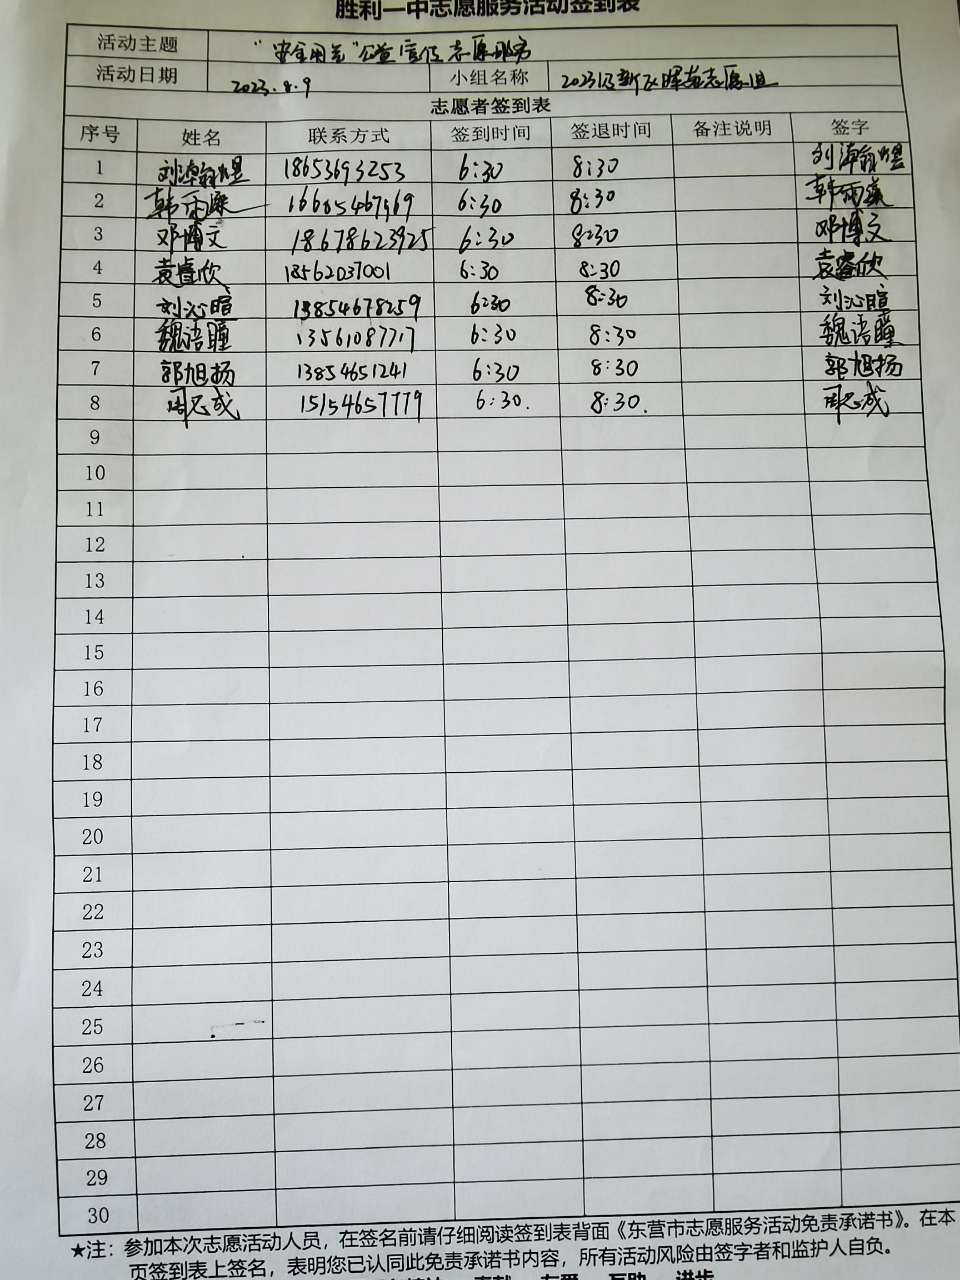 胜利一中志愿服务活动签到表
活动主题 "安全用气"公益宣传志愿服务
活动日期 2023.8.9 小组名称 2023级新
志愿者签到表
序号 姓名 联系方式 签到时间 签退时间 备注说明 签字
1 刘 18653693253 6:30 8:30 刘
2 韩雨 16605467969 6:30 8:30 韩雨
3 邓博文 18678623925 6:30 8:30 邓博文
4 袁睿欣 18562037001 6:30 8:30 袁睿欣
5 刘沁暄 13854678259 6:30 8:30 刘沁暄
6 魏语瞳 13561087717 6:30 8:30 魏语瞳
7 郭旭扬 13854651241 6:30 8:30 郭旭扬
8 周志成 15154657779 6:30. 8:30. 周志成
9
10
11
12
13
14
15
16
17
18
19
20
21
22
23
24
25
26
27
28
29
30
★注：参加本次志愿活动人员，在签名前请仔细阅读签到表背面《东营市志愿服务活动免责承诺书》。在本
页签到表上签名，表明您已认同此免责承诺书内容，所有活动风险由签字者和监护人自负。
奉献 友爱 互助 进步